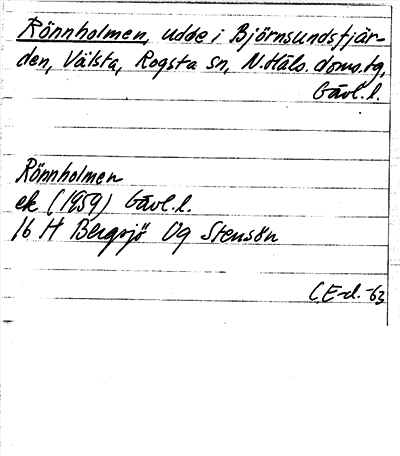 Rönnholmen, udde i Björnsundsfjär-
den, Välsta, Rogsta sn, N.Häls. doms.tg,
Gävl.l.
Rönnholmen
ek (1959) Gävl.l.
16 H Bergsjö Og Stensön
C.E-d.-63